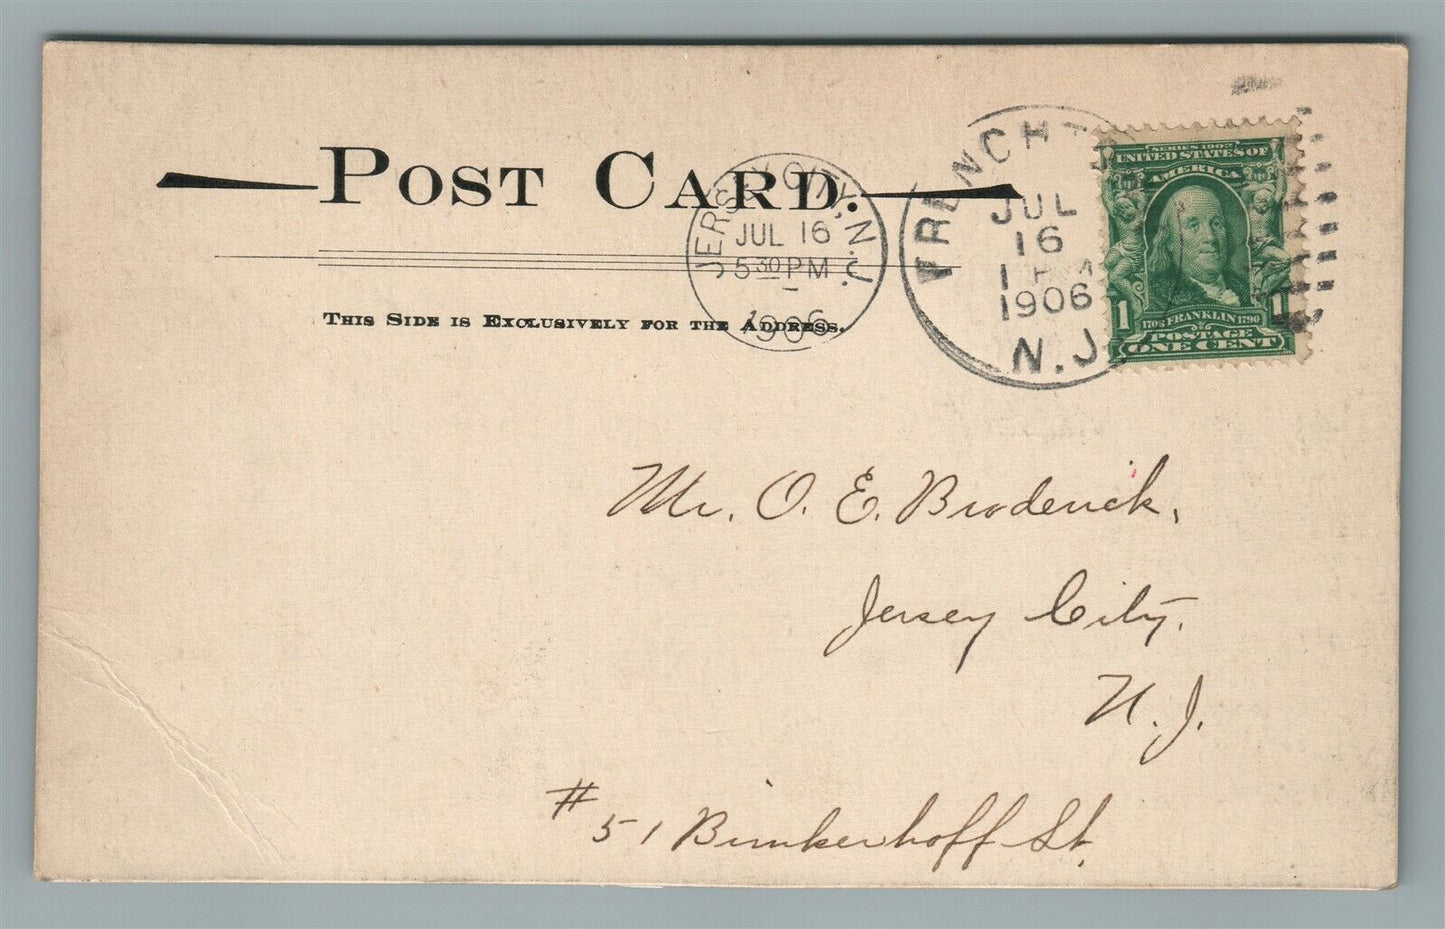 POST CARD.
THIS SIDE IS EXCLUSIVELY FOR THE ADDRESS.
JERSEY CITY, N.J.
JUL 16
5 30 PM
1906
FRENCHT
JUL
16
1 PM
1906
N.J.
SERIES 1902
UNITED STATES OF
AMERICA
1 1
1706 FRANKLIN 1790
POSTAGE
ONE CENT
Mr. O. E. Broderick,
Jersey City.
N. J.
# 51 Brinkerhoff St.